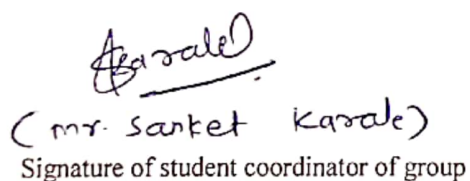 Skarale
(mr. sanket karale)
Signature of student coordinator of group